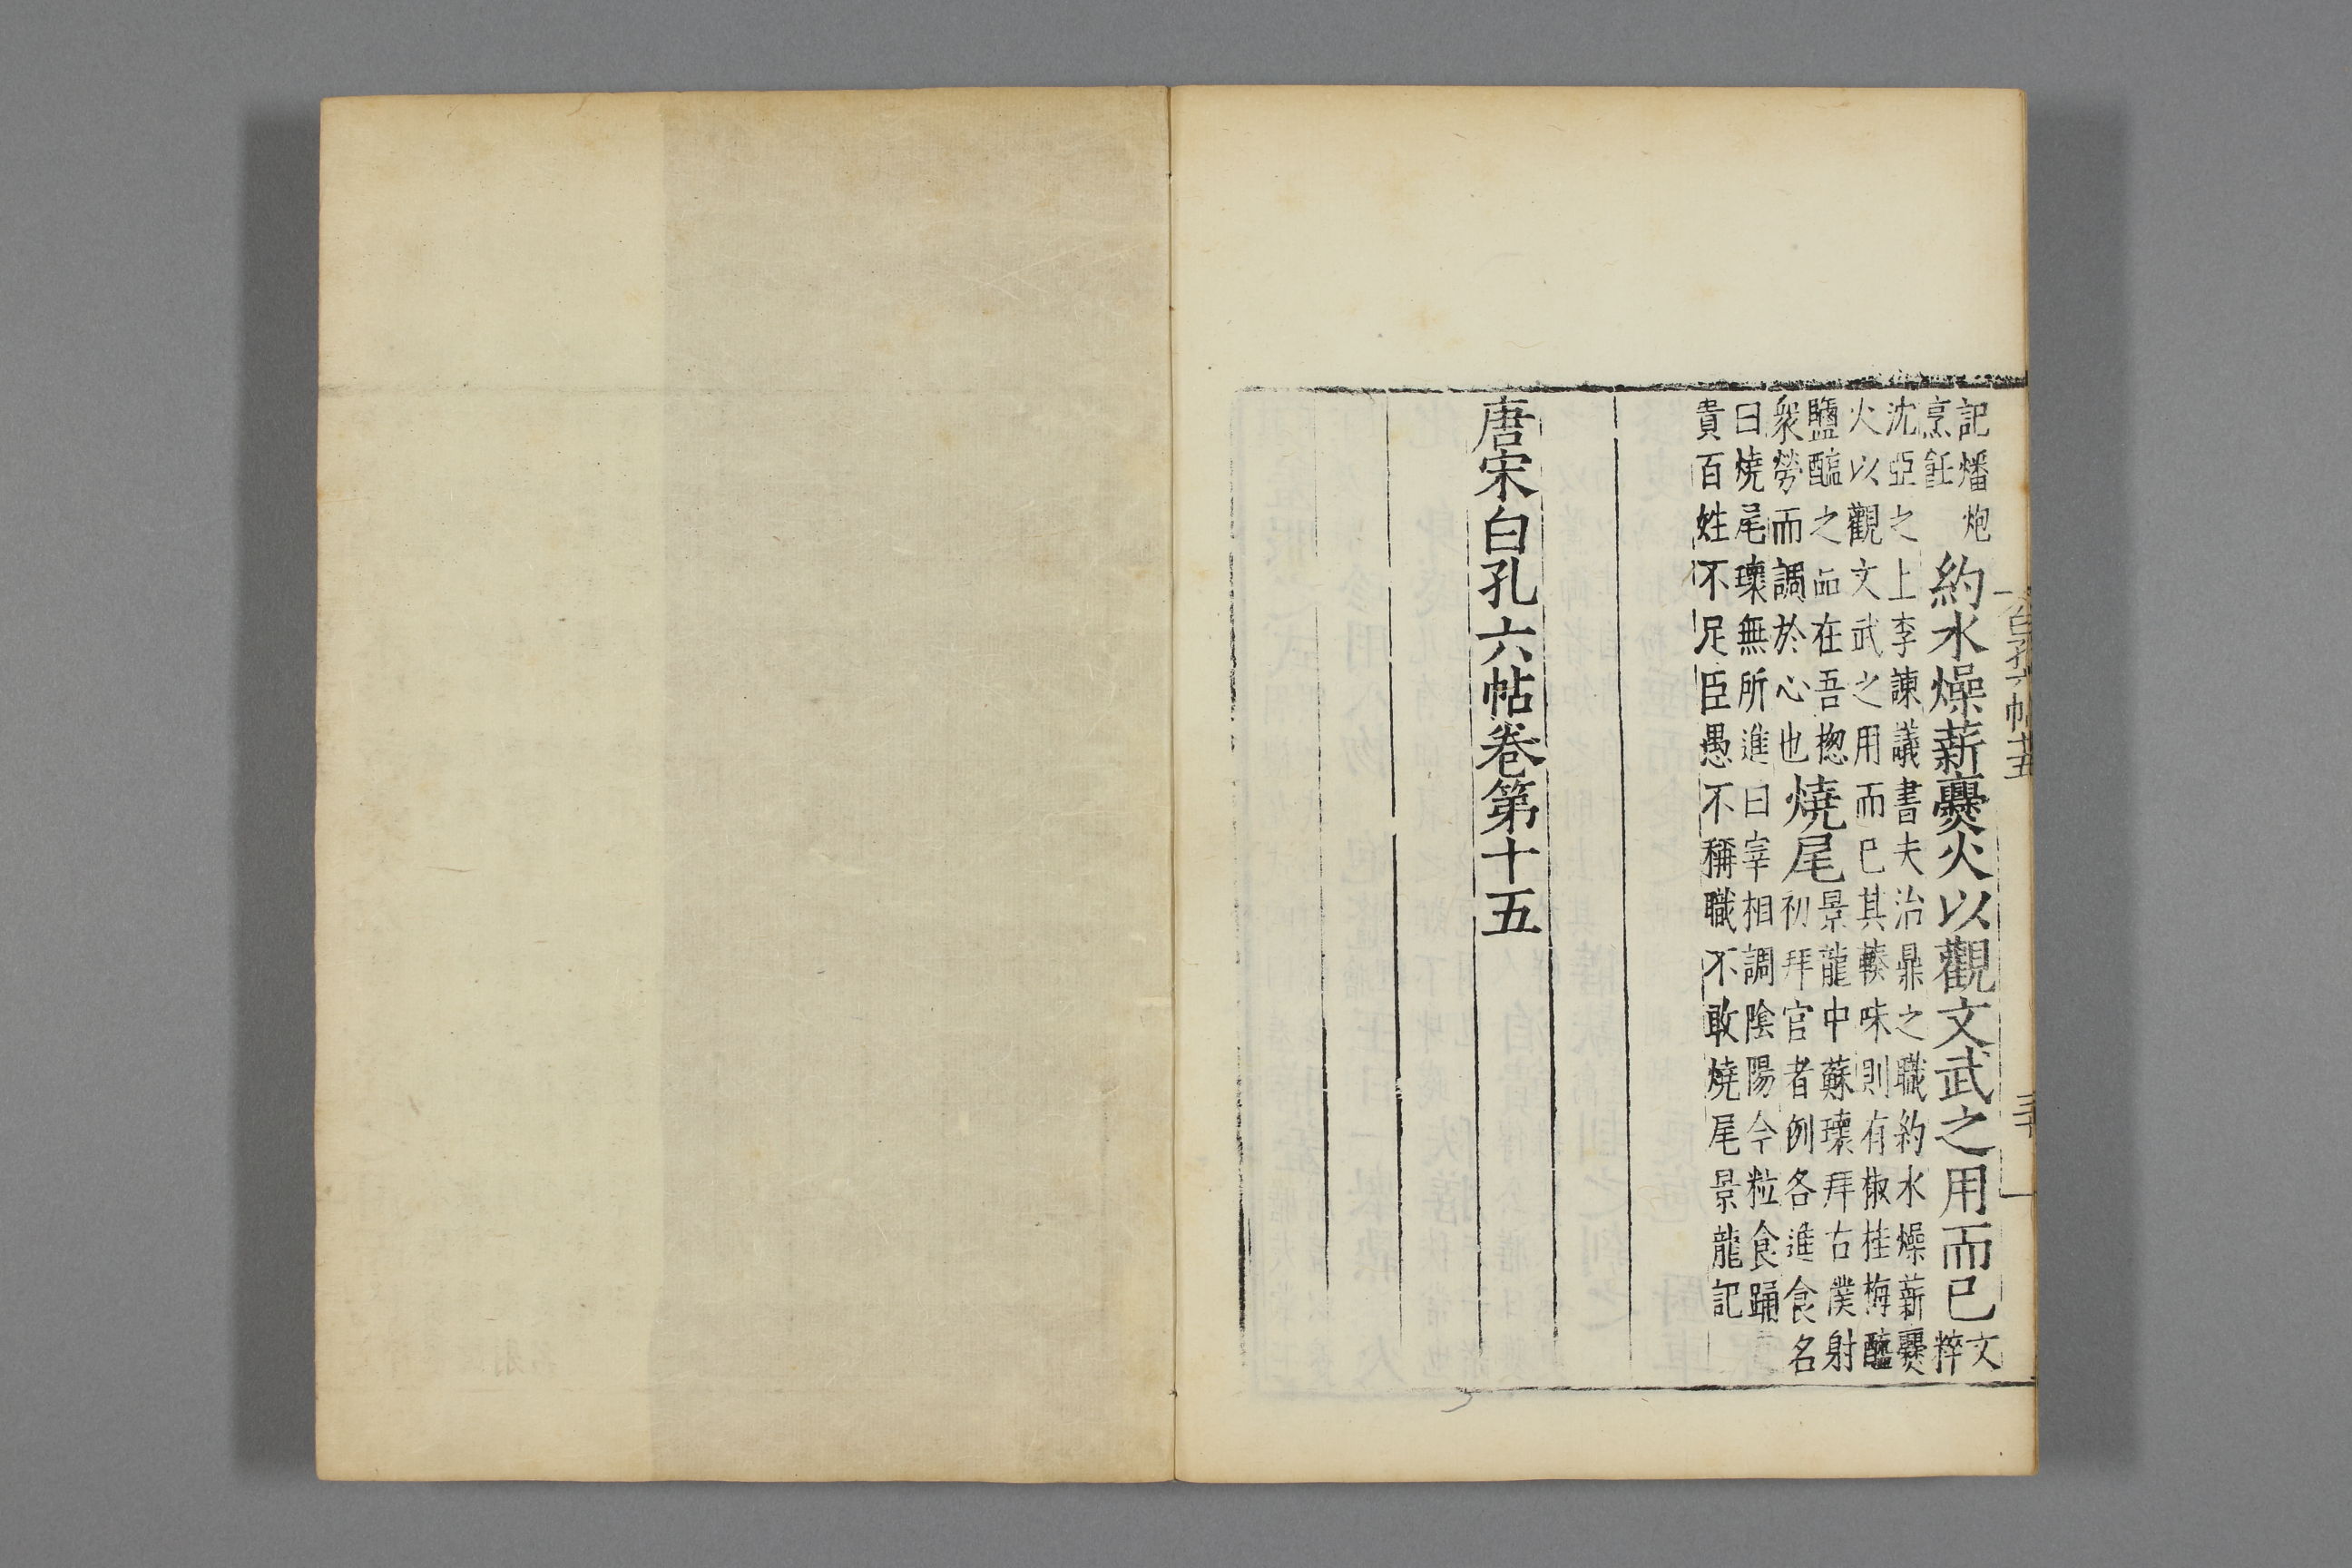 記燔炮
烹飪
約水燥薪爨火以觀文武之用而已
文
粹
沈亞之上李諫議書夫治鼎之職約水燥薪爨
火以觀文武之用而已其輳味則有椒桂梅醯
鹽醢之品在吾揔
衆勞而調於心也
燒尾
景龍中蘇瓌拜右僕射
初拜官者例各進食名
曰燒尾瓌無所進曰宰相調陰陽今粒食踊
貴百姓不足臣愚不稱職不敢燒尾景龍記
唐宋白孔六帖卷第十五
白孔六帖十五
三十